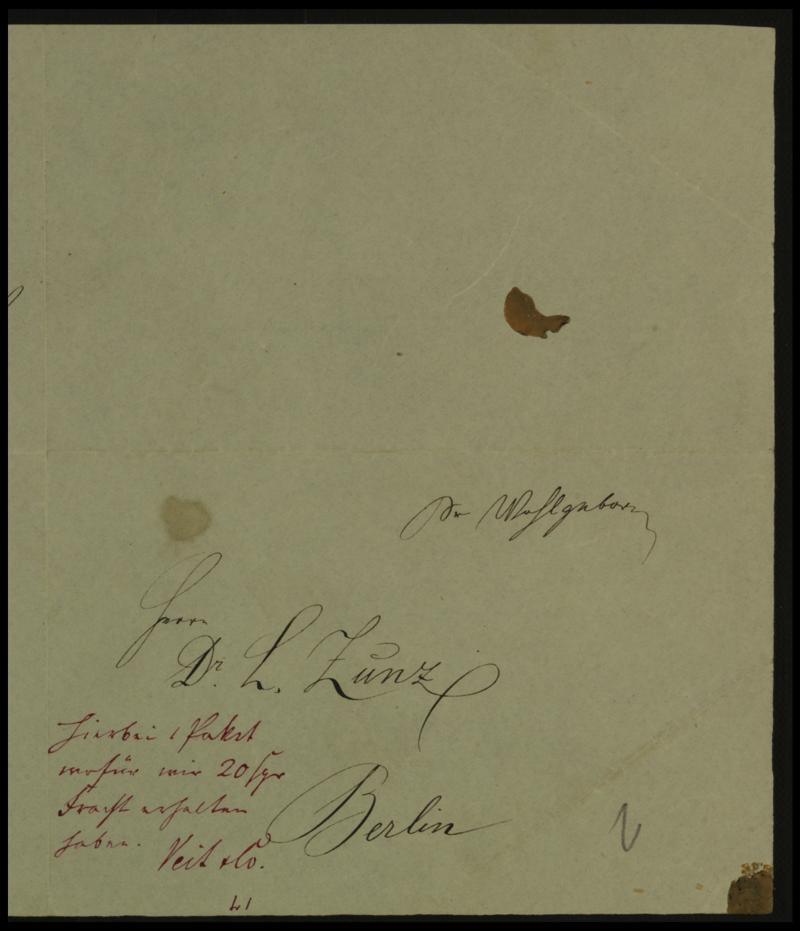 Sr Wohlgeborn
Herrn
Dr. L. Zunz
Hierbei 1 Paket
wofür wir 20 sgr
Fracht erhalten
haben. Veit & Co.
Berlin